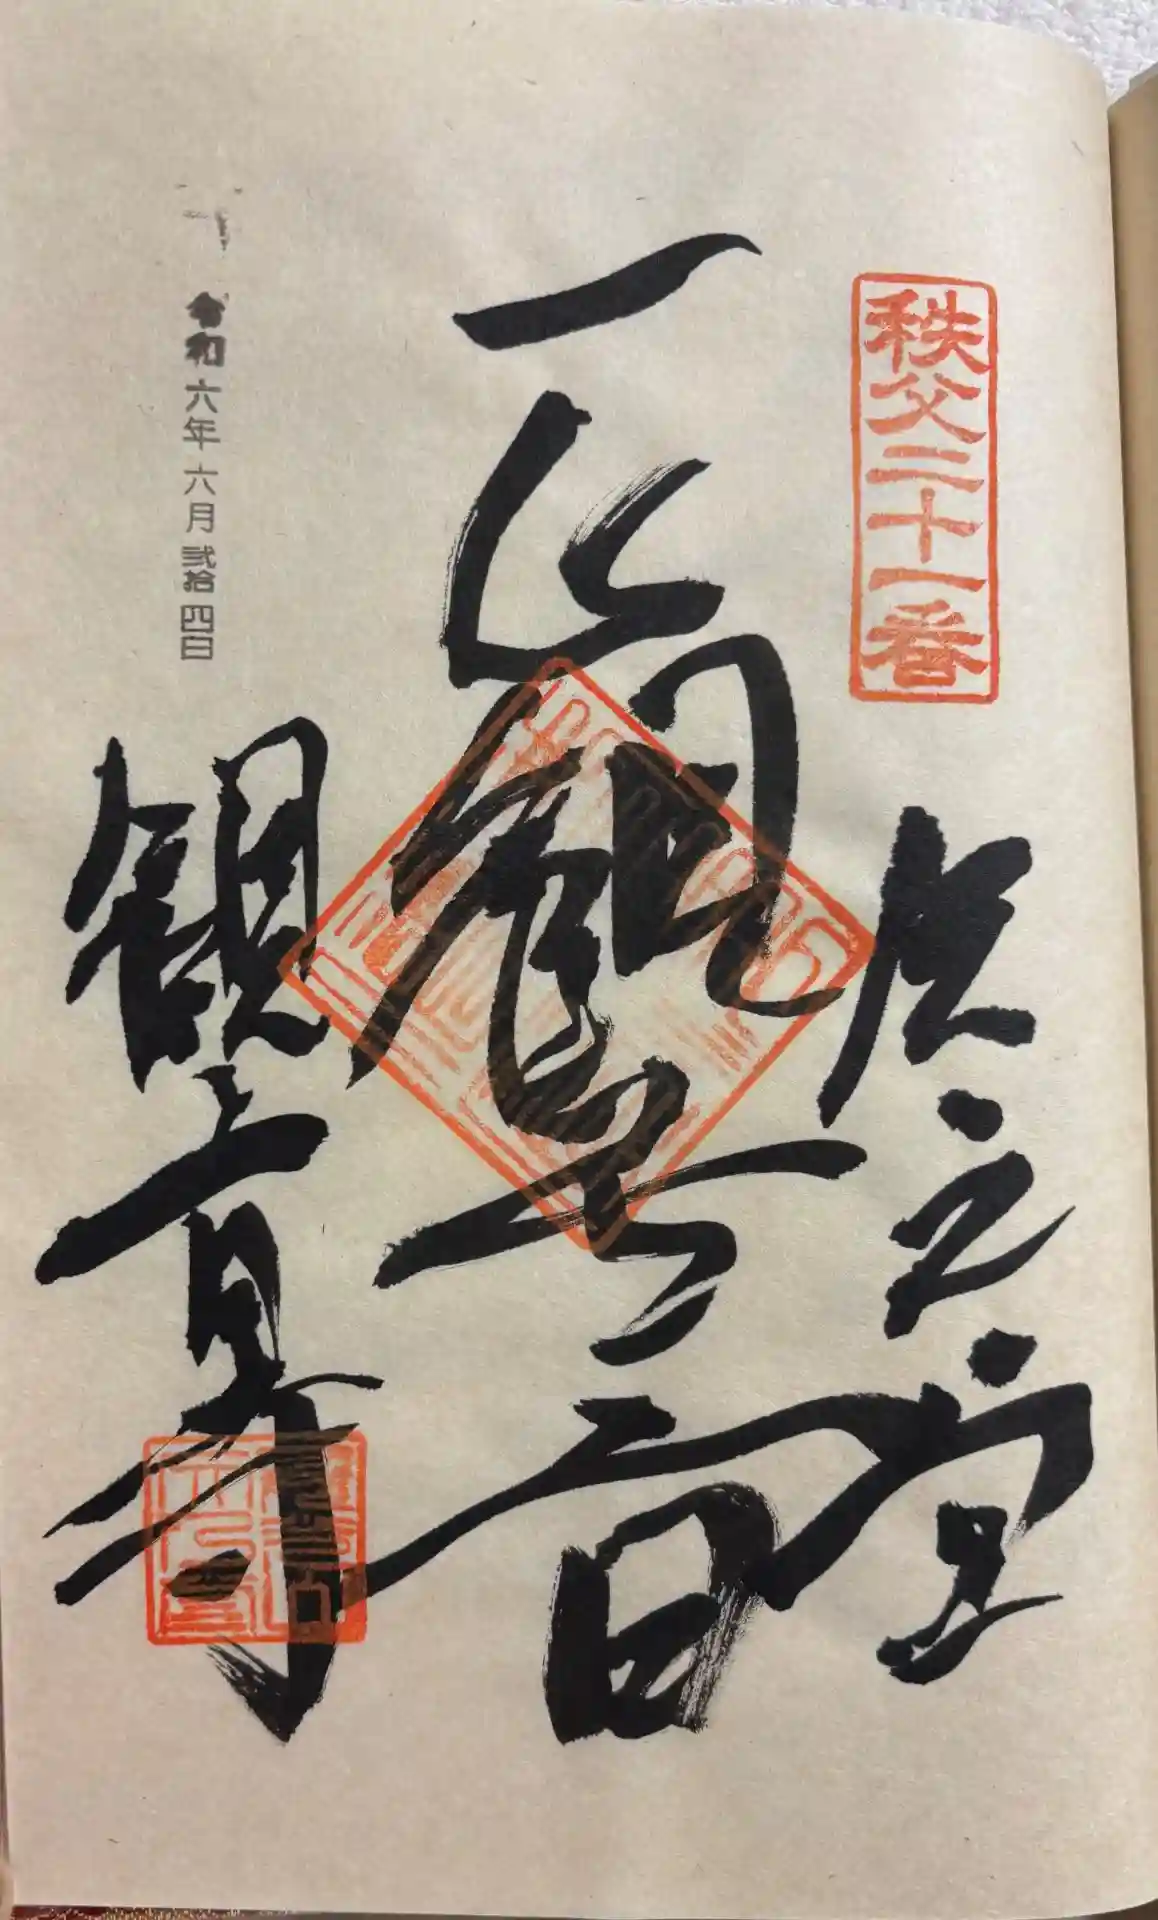 秩父二十一番
矢之堂
正観世音
令和六年六月弐拾四日
観音寺